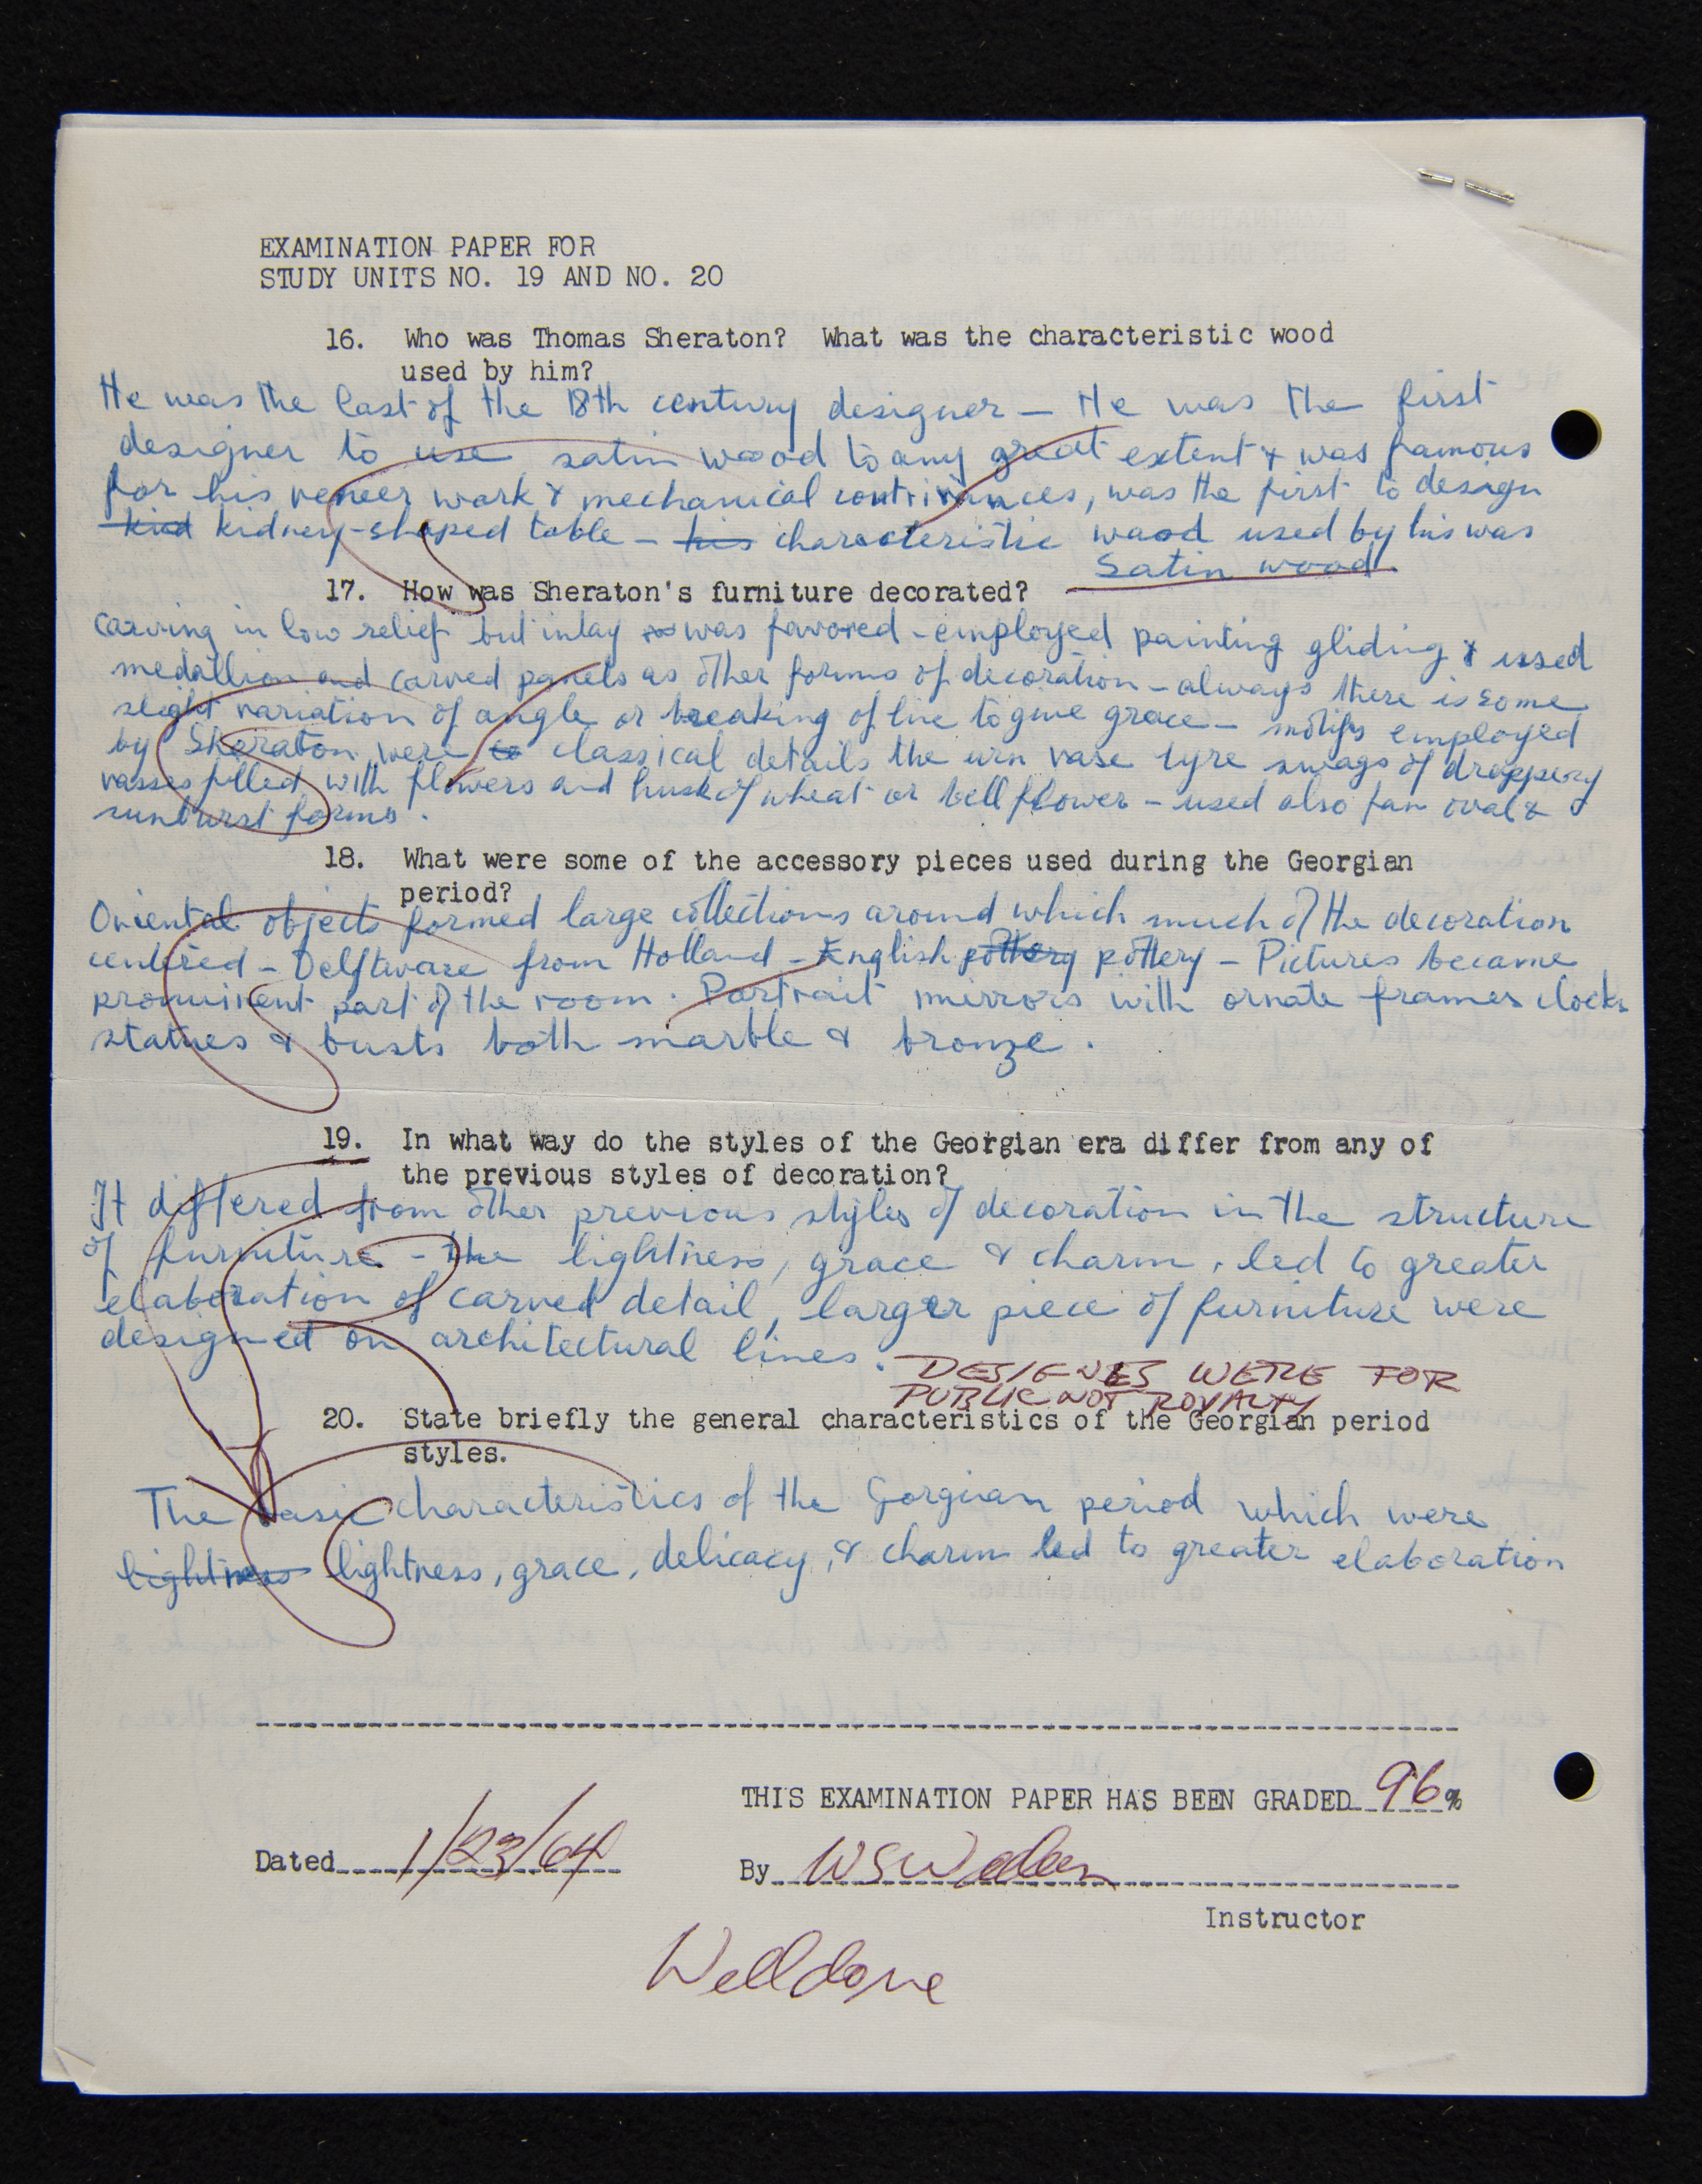 EXAMINATION PAPER FOR
STUDY UNITS NO. 19 AND NO. 20
16. Who was Thomas Sheraton? What was the characteristic wood
used by him?
He was the last of the 18th century designer – He was the first
designer to use satin wood to any great extent & was famous
for his veneer work & mechanical contrivances, was the first to design
kid kidney-shaped table – his characteristic wood used by his was
Satin wood.
17. How was Sheraton's furniture decorated?
Carving in low relief but inlay was favored - employed painting gliding & used
medallion and carved panels as other forms of decoration – always there is some
slight variation of angle or breaking of line to give grace – motifs employed
by Sheraton were to classical details the urn vase lyre swags of drappery
vasses filled with flowers and husk of wheat or bell flower – used also fan oval &
sunburst forms.
18. What were some of the accessory pieces used during the Georgian
period?
Oriental objects formed large collections around which much of the decoration
centered – Delftware from Holland – English pottery pottery – Pictures became
prominent part of the room. Portrait mirrors with ornate frames clocks
statues & busts both marble & bronze.
19. In what way do the styles of the Georgian era differ from any of
the previous styles of decoration?
It differed from other previous styles of decoration in the structure
of furniture – the lightness, grace & charm, led to greater
elaboration of carved detail, larger piece of furniture were
designed on architectural lines.
DESIGNES WERE FOR
PUBLIC NOT ROYALTY
20. State briefly the general characteristics of the Georgian period
styles.
The basic characteristics of the Gorgian period which were
lightness lightness, grace, delicacy, & charm led to greater elaboration
THIS EXAMINATION PAPER HAS BEEN GRADED 96%
Dated 1/23/64
By WS
Instructor
Well done